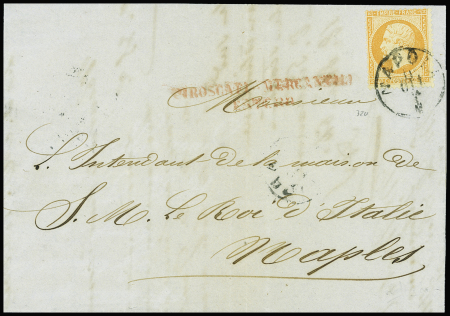 EMPIRE FRANC
PIROSCAFI MERCANTILI
Monsieur
L'Intendant de la maison de
S. M. Le Roi d'Italie
Naples